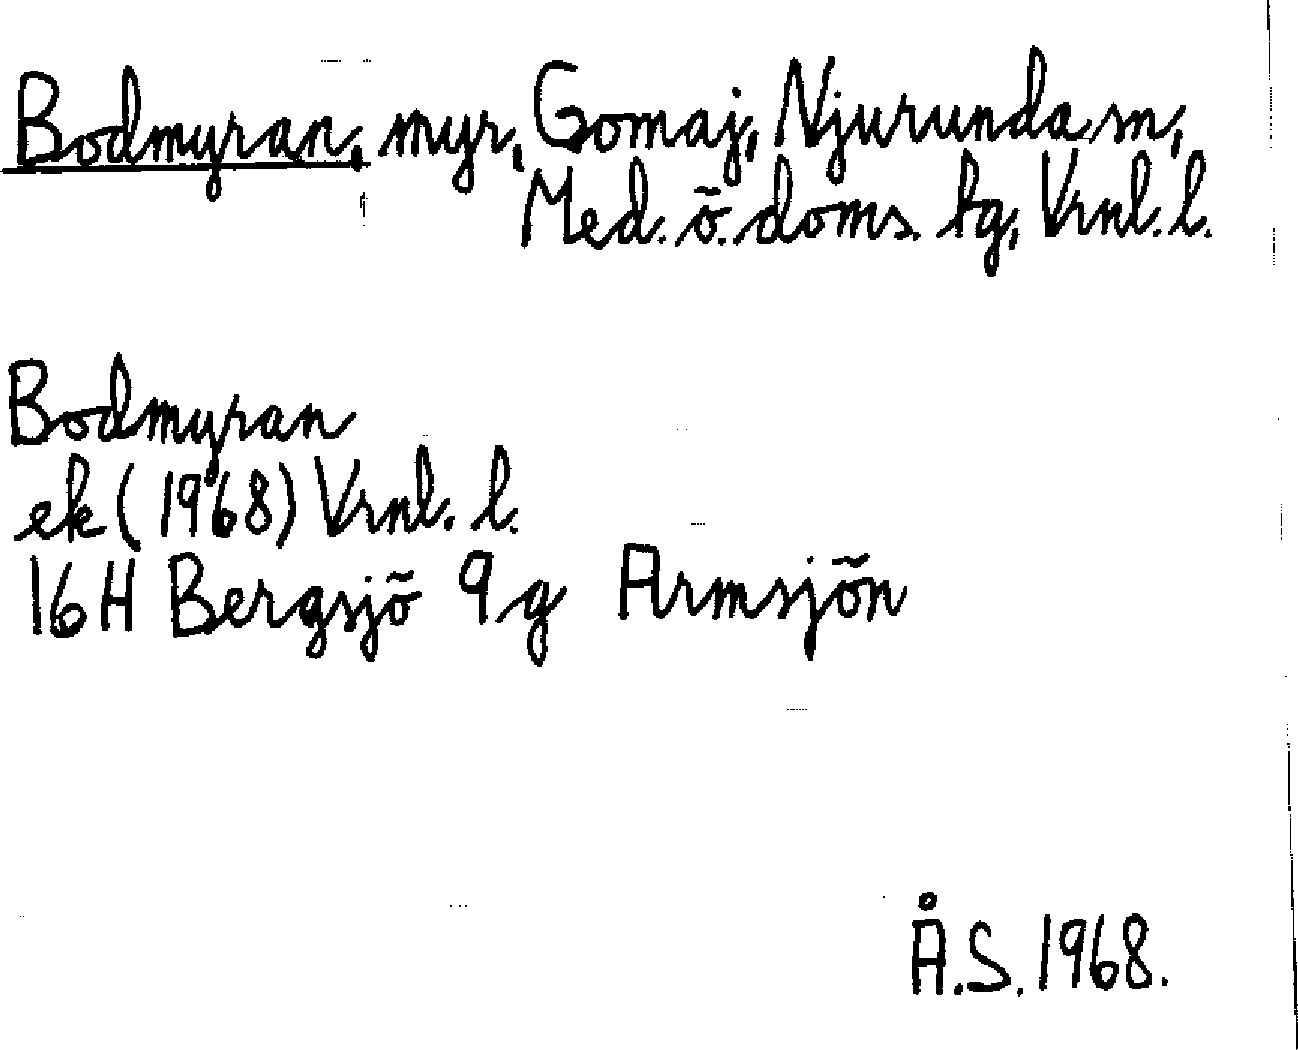 Bodmyran, myr, Gomaj, Njurunda sn,
Med. ö. doms. tg, Vrnl. l.
Bodmyran
ek (1968) Vrnl. l.
16H Bergsjö 9g Armsjön
Å.S. 1968.